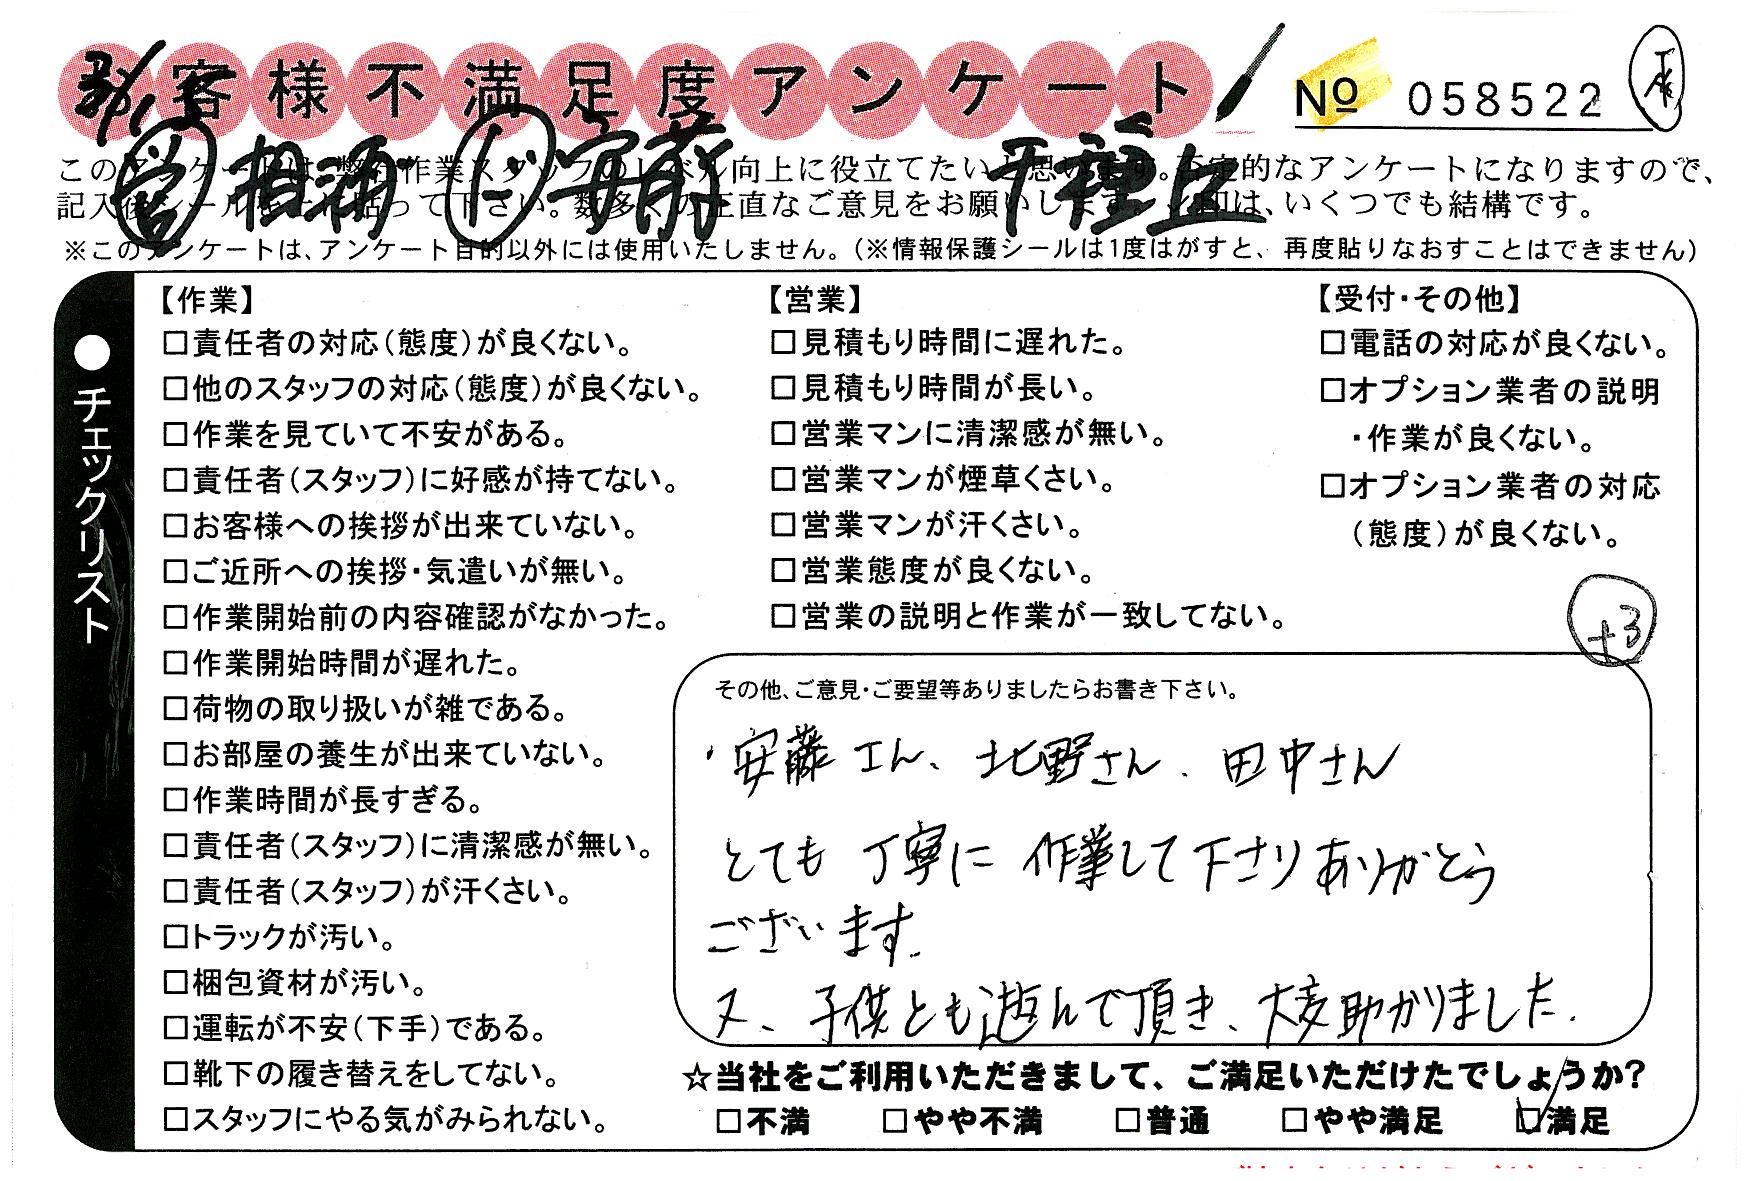 お客様不満足度アンケート
№ 058522
営 相酒 ト 安藤 千種 丘
このアンケートは、弊社作業スタッフのレベル向上に役立てたいと思います。否定的なアンケートになりますので、
記入後シールを上に貼って下さい。数多くの正直なご意見をお願いします。レ印は、いくつでも結構です。
※このアンケートは、アンケート目的以外には使用いたしません。(※情報保護シールは1度はがすと、再度貼りなおすことはできません)
●チェックリスト
【作業】
□責任者の対応(態度)が良くない。
□他のスタッフの対応(態度)が良くない。
□作業を見ていて不安がある。
□責任者(スタッフ)に好感が持てない。
□お客様への挨拶が出来ていない。
□ご近所への挨拶・気遣いが無い。
□作業開始前の内容確認がなかった。
□作業開始時間が遅れた。
□荷物の取り扱いが雑である。
□お部屋の養生が出来ていない。
□作業時間が長すぎる。
□責任者(スタッフ)に清潔感が無い。
□責任者(スタッフ)が汗くさい。
□トラックが汚い。
□梱包資材が汚い。
□運転が不安(下手)である。
□靴下の履き替えをしてない。
□スタッフにやる気がみられない。
【営業】
□見積もり時間に遅れた。
□見積もり時間が長い。
□営業マンに清潔感が無い。
□営業マンが煙草くさい。
□営業マンが汗くさい。
□営業態度が良くない。
□営業の説明と作業が一致してない。
【受付・その他】
□電話の対応が良くない。
□オプション業者の説明
・作業が良くない。
□オプション業者の対応
(態度)が良くない。
+3
その他、ご意見・ご要望等ありましたらお書き下さい。
・安藤さん、北野さん、田中さん
とても丁寧に作業して下さりありがとう
ございます。
又、子供とも遊んで頂き、大変助かりました。
☆当社をご利用いただきまして、ご満足いただけたでしょうか?
□不満 □やや不満 □普通 □やや満足 ☑満足